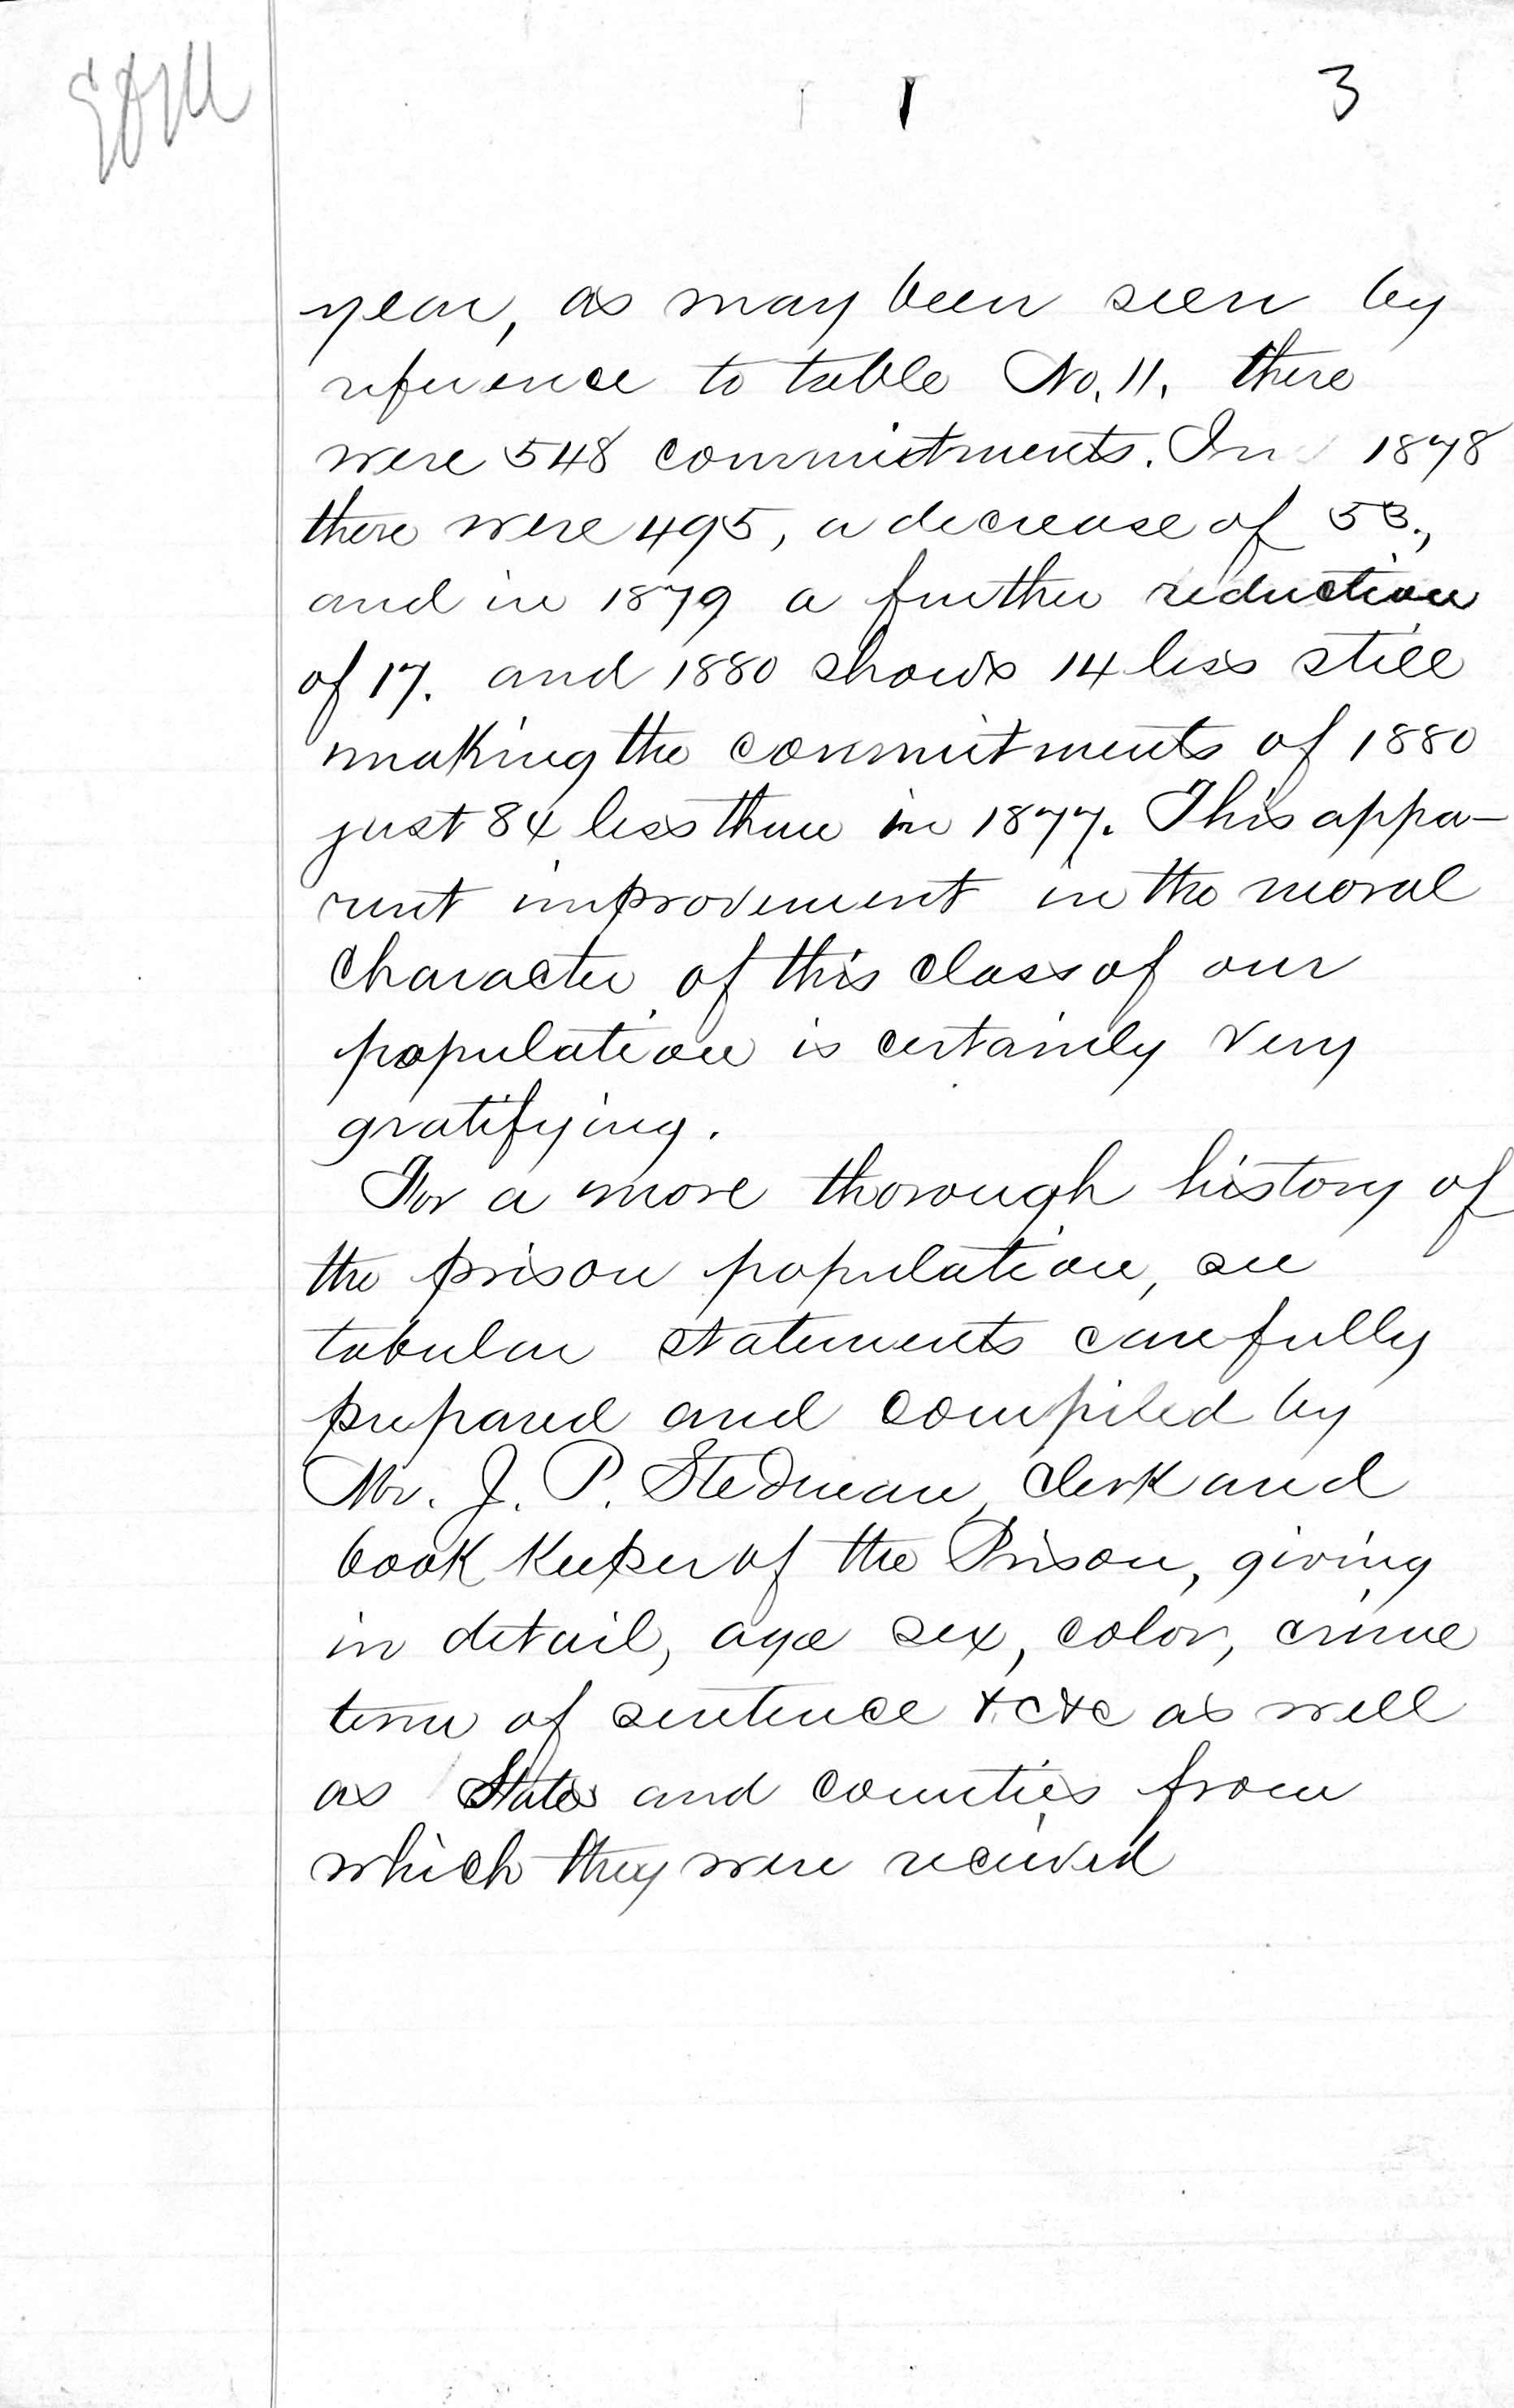 3
year, as may been seen by
reference to table No. 11. there
were 548 commitments. In 1878
there were 495, a decrease of 53.,
and in 1879 a further reduction
of 17. and 1880 shows 14 less still
making the commitments of 1880
just 84 less than in 1877. This appa-
rent improvement in the moral
character of this class of our
population is certainly very
gratifying.
For a more thorough history of
the prison population, see
tabular statements carefully
prepared and compiled by
Mr. J. P. Stedman, Clerk and
book keeper of the Prison, giving
in detail, age sex, color, crime
term of sentence &c &c as well
as States and counties from
which they were received